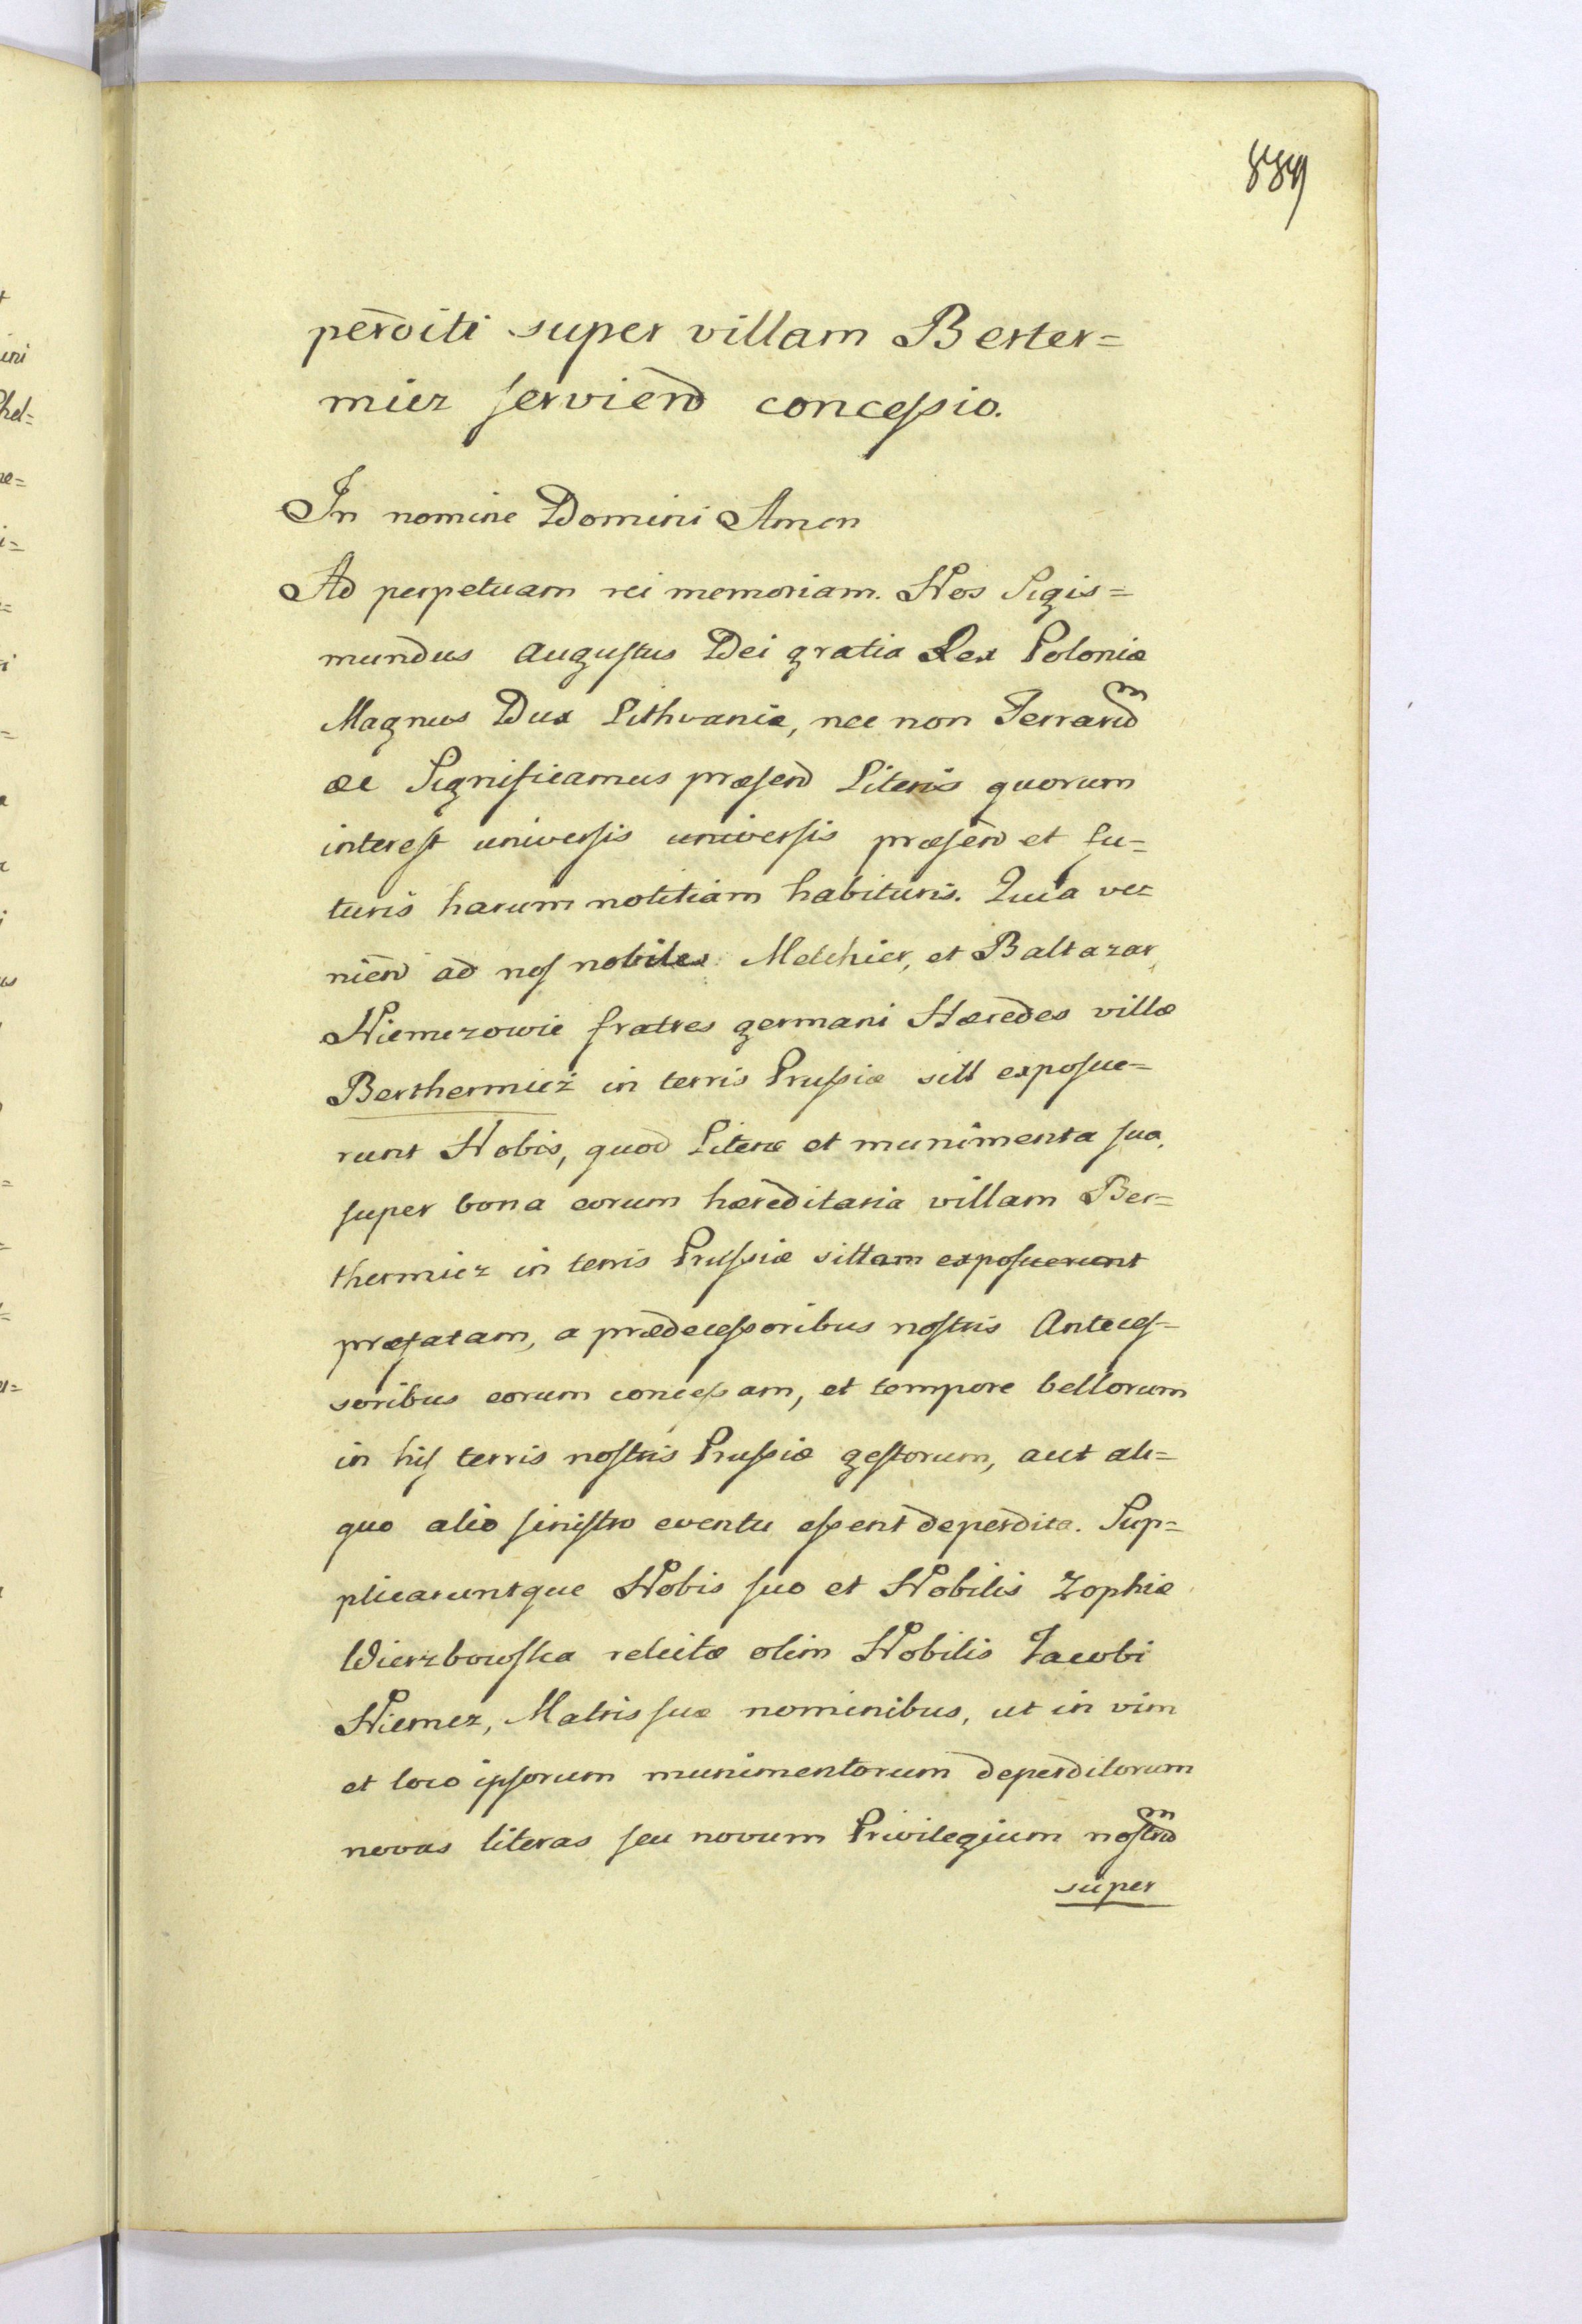 perditi super villam Berter=
miez serviend concessio.
In nomine Domini Amen
Ad perpetuam rei memoriam. Nos Sigis=
mundus Augustus Dei gratia Rex Poloniæ
Magnus Dux Lithvaniæ, nec non Terrarū
æc Significamus præsend Literis quorum
interest universis universis præsend et fu=
turis harum notitiam habituris. Quia ve=
niend ad nos nobiles Melchier, et Baltazar,
Niemezowie fratres germani Hæredes villæ
Berthermieź in terris Prussiæ sitt exposue=
runt Nobis, quod Literæ et munimenta sua,
super bona eorum hæreditaria villam Ber=
thermiez in terris Prussiæ sittam exposuerunt
præfatam, a prædecessoribus nostris Anteces=
soribus eorum concessam, et tempore bellorum
in his terris nostris Prussiæ gestorum, aut ali=
quo alio sinistro eventu essent deperdita. Sup=
plicaruntque Nobis suo et Nobilis Zophiæ
Wierzbowska relictæ olim Nobilis Jacobi
Niemez, Matris suæ nominibus, ut in vim
et loco ipsorum munimentorum deperditorum
novas literas seu novum Privilegium nostrū
super